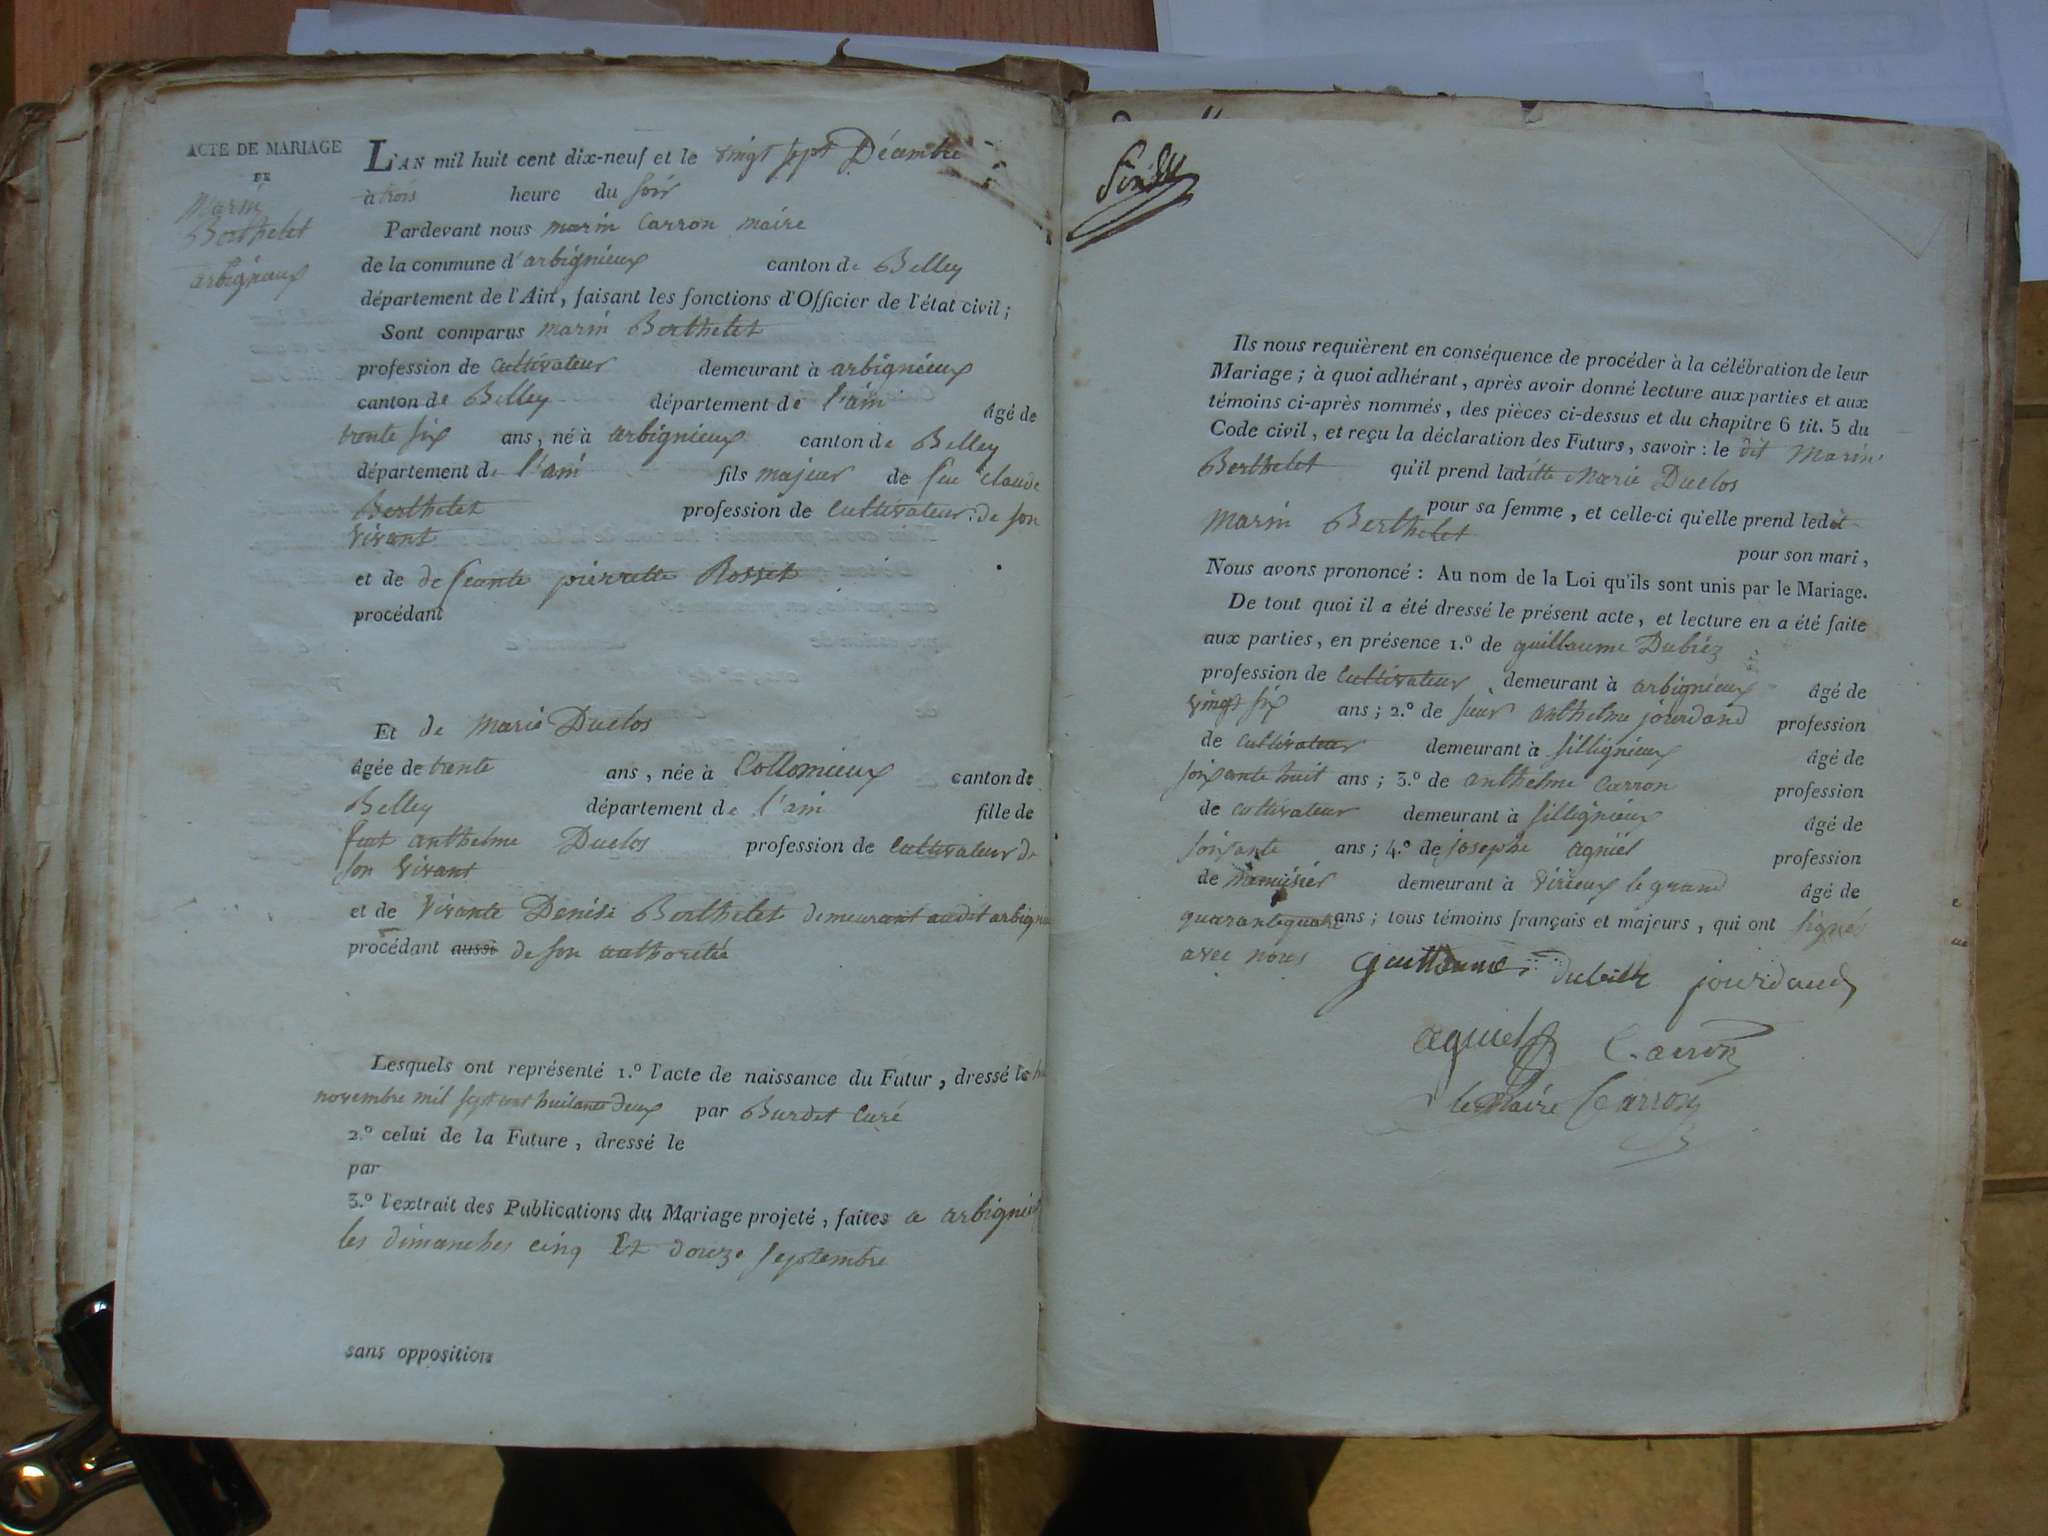 ACTE DE MARIAGE
DE
Marin
Berthelet
arbignieux
L'AN mil huit cent dix-neuf et le vingt sept Décembre
à trois heure du soir
Pardevant nous marin Carron maire
de la commune d'arbignieux canton de Belley
département de l'Ain, faisant les fonctions d'Officier de l'état civil;
Sont comparus marin Berthelet
profession de cultivateur demeurant à arbignieux
canton de Belley département de l'ain âgé de
trente six ans, né à arbignieux canton de Belley
département de l'ain fils majeur de feu Claude
Berthelet profession de cultivateur de son
vivant
et de defeante pierrette Rosset
procédant
Et de marie Duclos
âgée de trente ans, née à Collomieux canton de
Belley département de l'ain fille de
feut anthelme Duclos profession de cultivateur de
son vivant
et de vivante Denise Berthelet demeurant audit arbign
procédant aussi de son authoritée
Lesquels ont représenté 1.º l'acte de naissance du Futur, dressé le
novembre mil sept cent huitante deux par Burdet Curé
2.º celui de la Future, dressé le
par
3.º l'extrait des Publications du Mariage projeté, faites a arbignieu
les dimanches cinq Et douze septembre
sans opposition
Ils nous requièrent en conséquence de procéder à la célébration de leur
Mariage; à quoi adhérant, après avoir donné lecture aux parties et aux
témoins ci-après nommés, des pièces ci-dessus et du chapitre 6 tit. 5 du
Code civil, et reçu la déclaration des Futurs, savoir: le dit Marin
Berthelet qu'il prend laditte Marie Duclos
pour sa femme, et celle-ci qu'elle prend ledit
Marin Berthelet
pour son mari,
Nous avons prononcé: Au nom de la Loi qu'ils sont unis par le Mariage.
De tout quoi il a été dressé le présent acte, et lecture en a été faite
aux parties, en présence 1.º de guillaume Dubiéz
profession de cultivateur demeurant à arbignieux âgé de
vingt six ans; 2.º de sieur anthelme jourdand profession
de cultivateur demeurant à sillignieux âgé de
soixante huit ans; 3.º de anthelme Carron profession
de cultivateur demeurant à sillignieux âgé de
soixante ans; 4.º de josephe agniel profession
de menuisier demeurant à virieux le grand âgé de
quarante quatre ans; tous témoins français et majeurs, qui ont signés
avec nous guillaume jourdand
agniel Carron
le Maire Carron